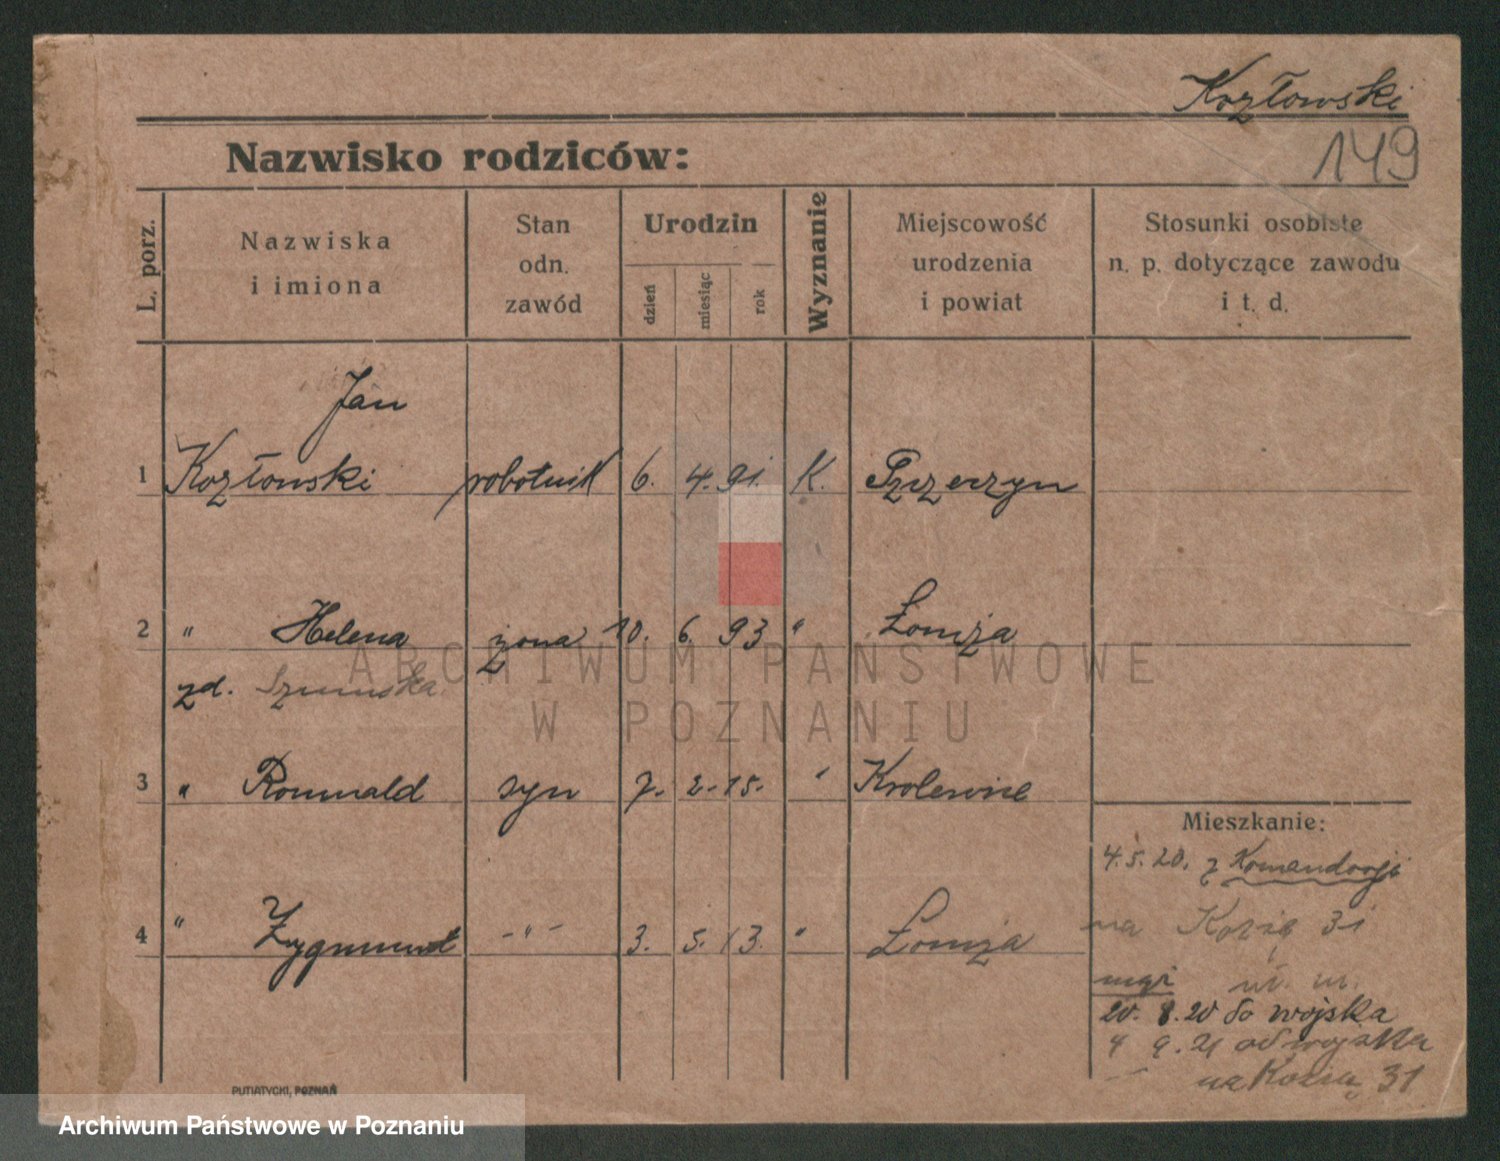 Kozłowski
149
Nazwisko rodziców:
L. porz.
Nazwiska
i imiona
Stan
odn.
zawód
Urodzin
dzień
miesiąc
rok
Wyznanie
Miejscowość
urodzenia
i powiat
Stosunki osobiste
n. p. dotyczące zawodu
i t. d.
Jan
1 Kozłowski robotnik 6. 4. 91. K.
2 " Helena żona 10. 6. 93 " Łomża
zd. Szumska
3 " Romuald syn 7. 2. 15. "
4 " Zygmunt -"- 3. 5. 13. " Łomża
Mieszkanie:
4.5.20. z Komandorji
na Kozią 31
mąż
20. 8. 20 do wojska
4 9. 21 od wojska
na Kozią 31
PUTIATYCKI, POZNAŃ
ARCHIWUM PAŃSTWOWE
W POZNANIU
Archiwum Państwowe w Poznaniu